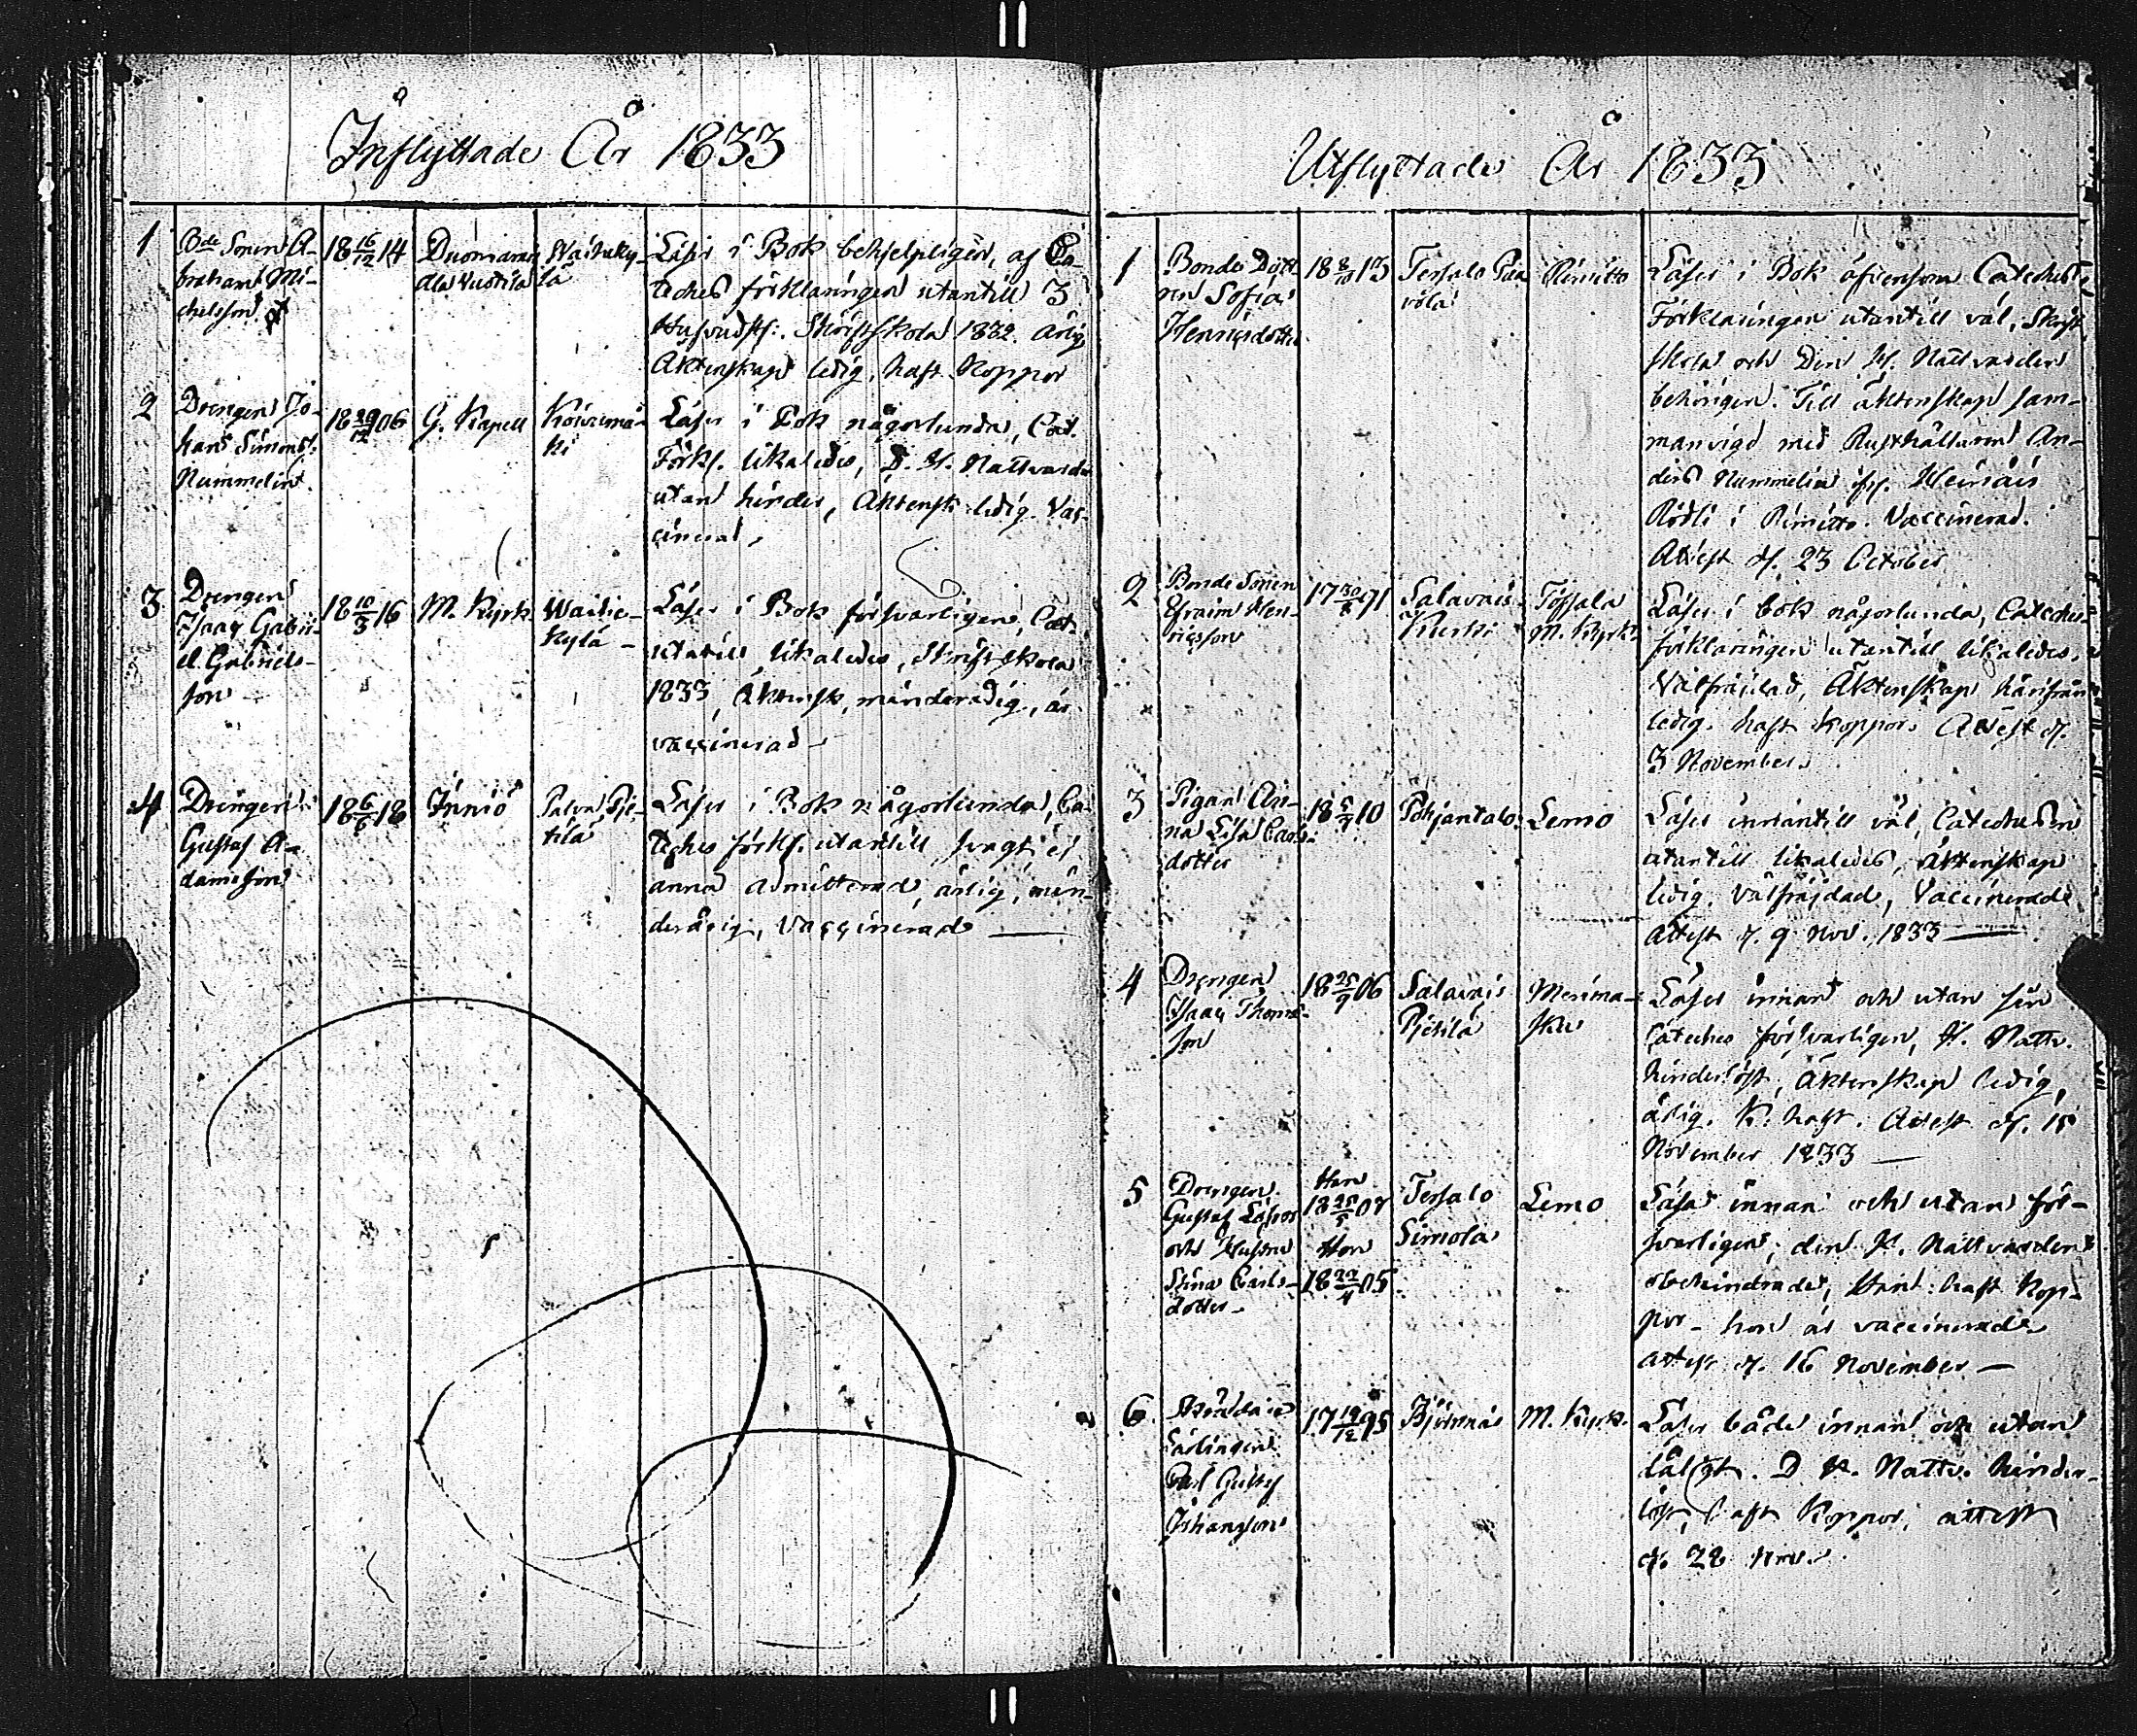 Inflyttade År 1833
1
Bde Sonen A-
braham Mi-
chelsson
18 16/12 14
Waihky-
lä
Läser i Bok behjelpligen, af Ca-
teches förklaringen utantill 3
Skriftskola 1832. ärlig
Äktenskap ledig, haft Koppor
2
Drengen Jo-
han Simonss:
Nummelin
18 29/12 06
G. Kapell
Koivumä-
ki
Läser i Bok någorlunda, Cat.
Förkl. likaledes, D. H. Nattvarden
utan hinder, Äktensk. ledig. Vac-
cinerad,
3
Drengen
Isaac Gabri-
el Gabriels-
son
18 10/3 16
M. Kyrk.
Waihe-
kylä
Läser i Bok försvarligen, Cat.
utantill likaledes, Skriftskola
1833, Äktensk. minderårig, är
vaccinerad
4
Drengen
Gustaf A-
damsson
18 6/6 18
Inniö
Palva Pje-
tilä
Läser i Bok någorlunda, Ca-
teches förkl. utantill svagt, ej
ännu admitterad, ärlig, min-
derårig, Vaccinerad
Utflyttade År 1833
1
Bonde Dott-
ren Sofia
Henricsdotter
18 8/10 13
Tersalo
Rimitto
Läser i Bok Catechets
Förklaringen utantill väl, Skrift
skola och Den H. Nattvarden
behörigen. Till äktenskap sam-
manvigd med Rusthållaren An-
ders Nummelin ifr. Heinäis
Rodli i Rimitto. Vaccinerad.
Attest d. 23 October
2
Bonde Sonen
Efraim Hen-
ricsson
17 30/8 91
Salavais
Kurki
Töfsala
M. Kyrk.
Läser i bok någorlunda, Cateches-
förklaringen utantill likaledes,
Välfräjdad, Äktenskap härifrån
ledig. haft koppor. Attest d.
3 November.
3
Pigan An-
na Lisa Carls-
dotter
18 5/7 10
Pohjantalo
Lemo
Läser innantill väl, Catechesen
utantill likaledes, äktenskap
ledig, välfräjdad, Vaccinerade
Attest d. 9 Nov. 1833
4
Drengen
Isaac Thoms-
son
18 25/9 06
Salavais
Pjetilä
Merima-
sku
Läser innan och utan sin
Cateches försvarligen, H. Nattv.
hinderlöst, Äktenskap ledig,
ärlig. K. haft. Attest d. 15
November 1833
5
Drengen
Gustaf
och Hustru
Stina Carls-
dotter
Han
18 25/5 07
Hon
18 22/4 05
Tersalo
Simola
Lemo
Läsa innan och utan för-
svarligen, den H. Nattvarden
obehindrade, Han haft Kop-
por - hon är vaccinerade
attest d. 16 November
6
Skräddare
Lärlingen
Carl Gustaf
Johansson
17 19/12 95
Björnnäs
M. Kyrk.
Läser både innan och utan
D H. Nattv. hinder-
löst, haft Koppor, attest
d. 28 Nov.